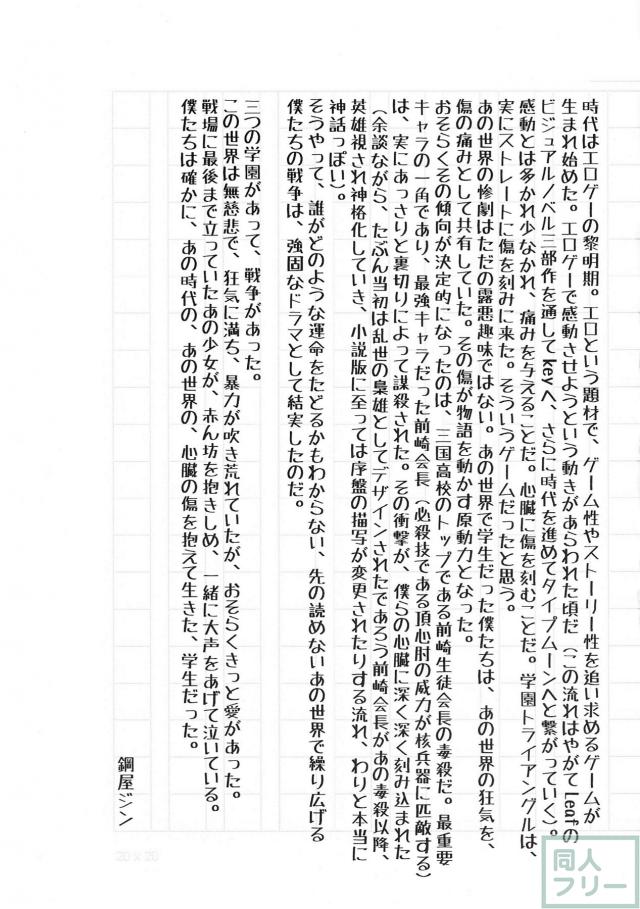 時代はエロゲーの黎明期。エロという題材で、ゲーム性やストーリー性を追い求めるゲームが
生まれ始めた。エロゲーで感動させようという動きがあらわれた頃だ（この流れはやがてLeafの
ビジュアルノベル三部作を通してkeyへ、さらに時代を進めてタイプムーンへと繋がっていく）。
感動とは多かれ少なかれ、痛みを与えることだ。心臓に傷を刻むことだ。学園トライアングルは、
実にストレートに傷を刻みに来た。そういうゲームだったと思う。
あの世界の惨劇はただの露悪趣味ではない。あの世界で学生だった僕たちは、あの世界の狂気を、
傷の痛みとして共有していた。その傷が物語を動かす原動力となった。
おそらくその傾向が決定的になったのは、三国高校のトップである前崎生徒会長の毒殺だ。最重要
キャラの一角であり、最強キャラだった前崎会長（必殺技である頂心肘の威力が核兵器に匹敵する）
は、実にあっさりと裏切りによって謀殺された。その衝撃が、僕らの心臓に深く深く刻み込まれた
（余談ながら、たぶん当初は乱世の梟雄としてデザインされたであろう前崎会長があの毒殺以降、
英雄視され神格化していき、小説版に至っては序盤の描写が変更されたりする流れ、わりと本当に
神話っぽい）。
そうやって、誰がどのような運命をたどるかもわからない、先の読めないあの世界で繰り広げる
僕たちの戦争は、強固なドラマとして結実したのだ。
三つの学園があって、戦争があった。
この世界は無慈悲で、狂気に満ち、暴力が吹き荒れていたが、おそらくきっと愛があった。
戦場に最後まで立っていたあの少女が、赤ん坊を抱きしめ、一緒に大声をあげて泣いている。
僕たちは確かに、あの時代の、あの世界の、心臓の傷を抱えて生きた、学生だった。
鋼屋ジン
20×20
同人
フリー